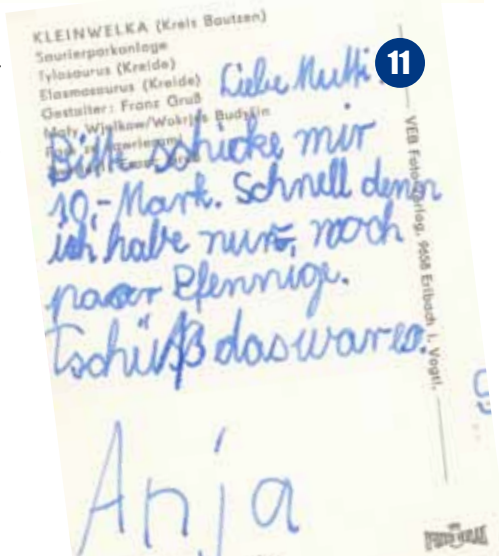 KLEINWELKA (Kreis Bautzen)
Saurierparkanlage
Tylosaurus (Kreide)
Elasmosaurus (Kreide)
Gestalter: Franz Gruß
Liebe Mutti
11
Bitte schicke mir
10,- Mark. Schnell denn
ich habe nur, noch
paar Pfennige.
Tschüß das wares.
Anja
VEB Foto-Verlag, 9658 Erlbach i. Vogtl.